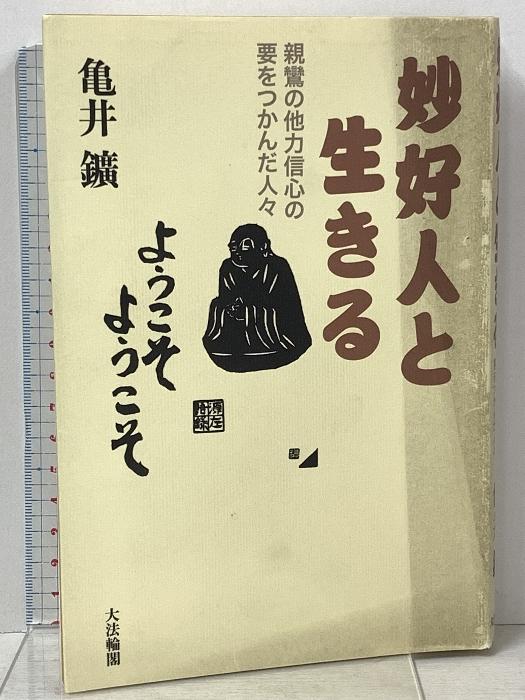 妙好人と
生きる
親鸞の他力信心の
要をつかんだ人々
亀井 鑛
ようこそ
ようこそ
大法輪閣